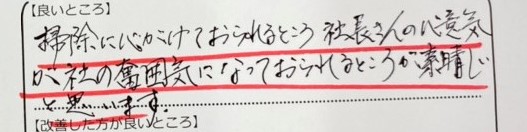 【良いところ】
掃除に心がけておられるところ 社長さんの心意気
が社の奮囲気になっておられるところが素晴しい
と思います。
【改善した方が良いところ】